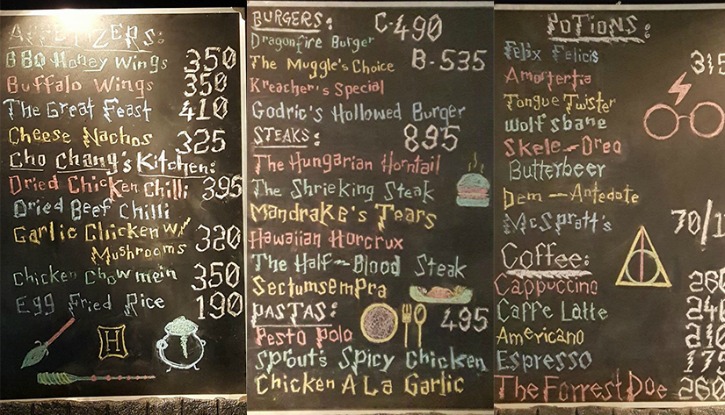 APPETIZERS:
BBQ Honey Wings 350
Buffalo Wings 350
The Great Feast 410
Cheese Nachos 325
Cho Chang's Kitchen:
Dried Chicken Chilli 395
Dried Beef Chilli
Garlic Chicken W/ Mushrooms 320
Chicken Chowmein 350
Egg Fried Rice 190
H
BURGERS: C-490
Dragonfire Burger
The Muggle's Choice B-535
Kreacher's Special
Godric's Hollowed Burger
STEAKS: 895
The Hungarian Horntail
The Shrieking Steak
Mandrake's Tears
Hawaiian Horcrux
The Half-Blood Steak
Sectumsempra
PASTAS: 495
Pesto Polo
Sprout's Spicy Chicken
Chicken A La Garlic
POTIONS:
Felix Felicis 315
Amortertia
Tongue Twister
Wolfsbane
Skele-Dreo
Butterbeer
Dem-Antedote
McSpratt's 70/1
Coffee:
Cappuccino 260
Caffe Latte 240
Americano 210
Espresso 170
The Forrest Doe 260